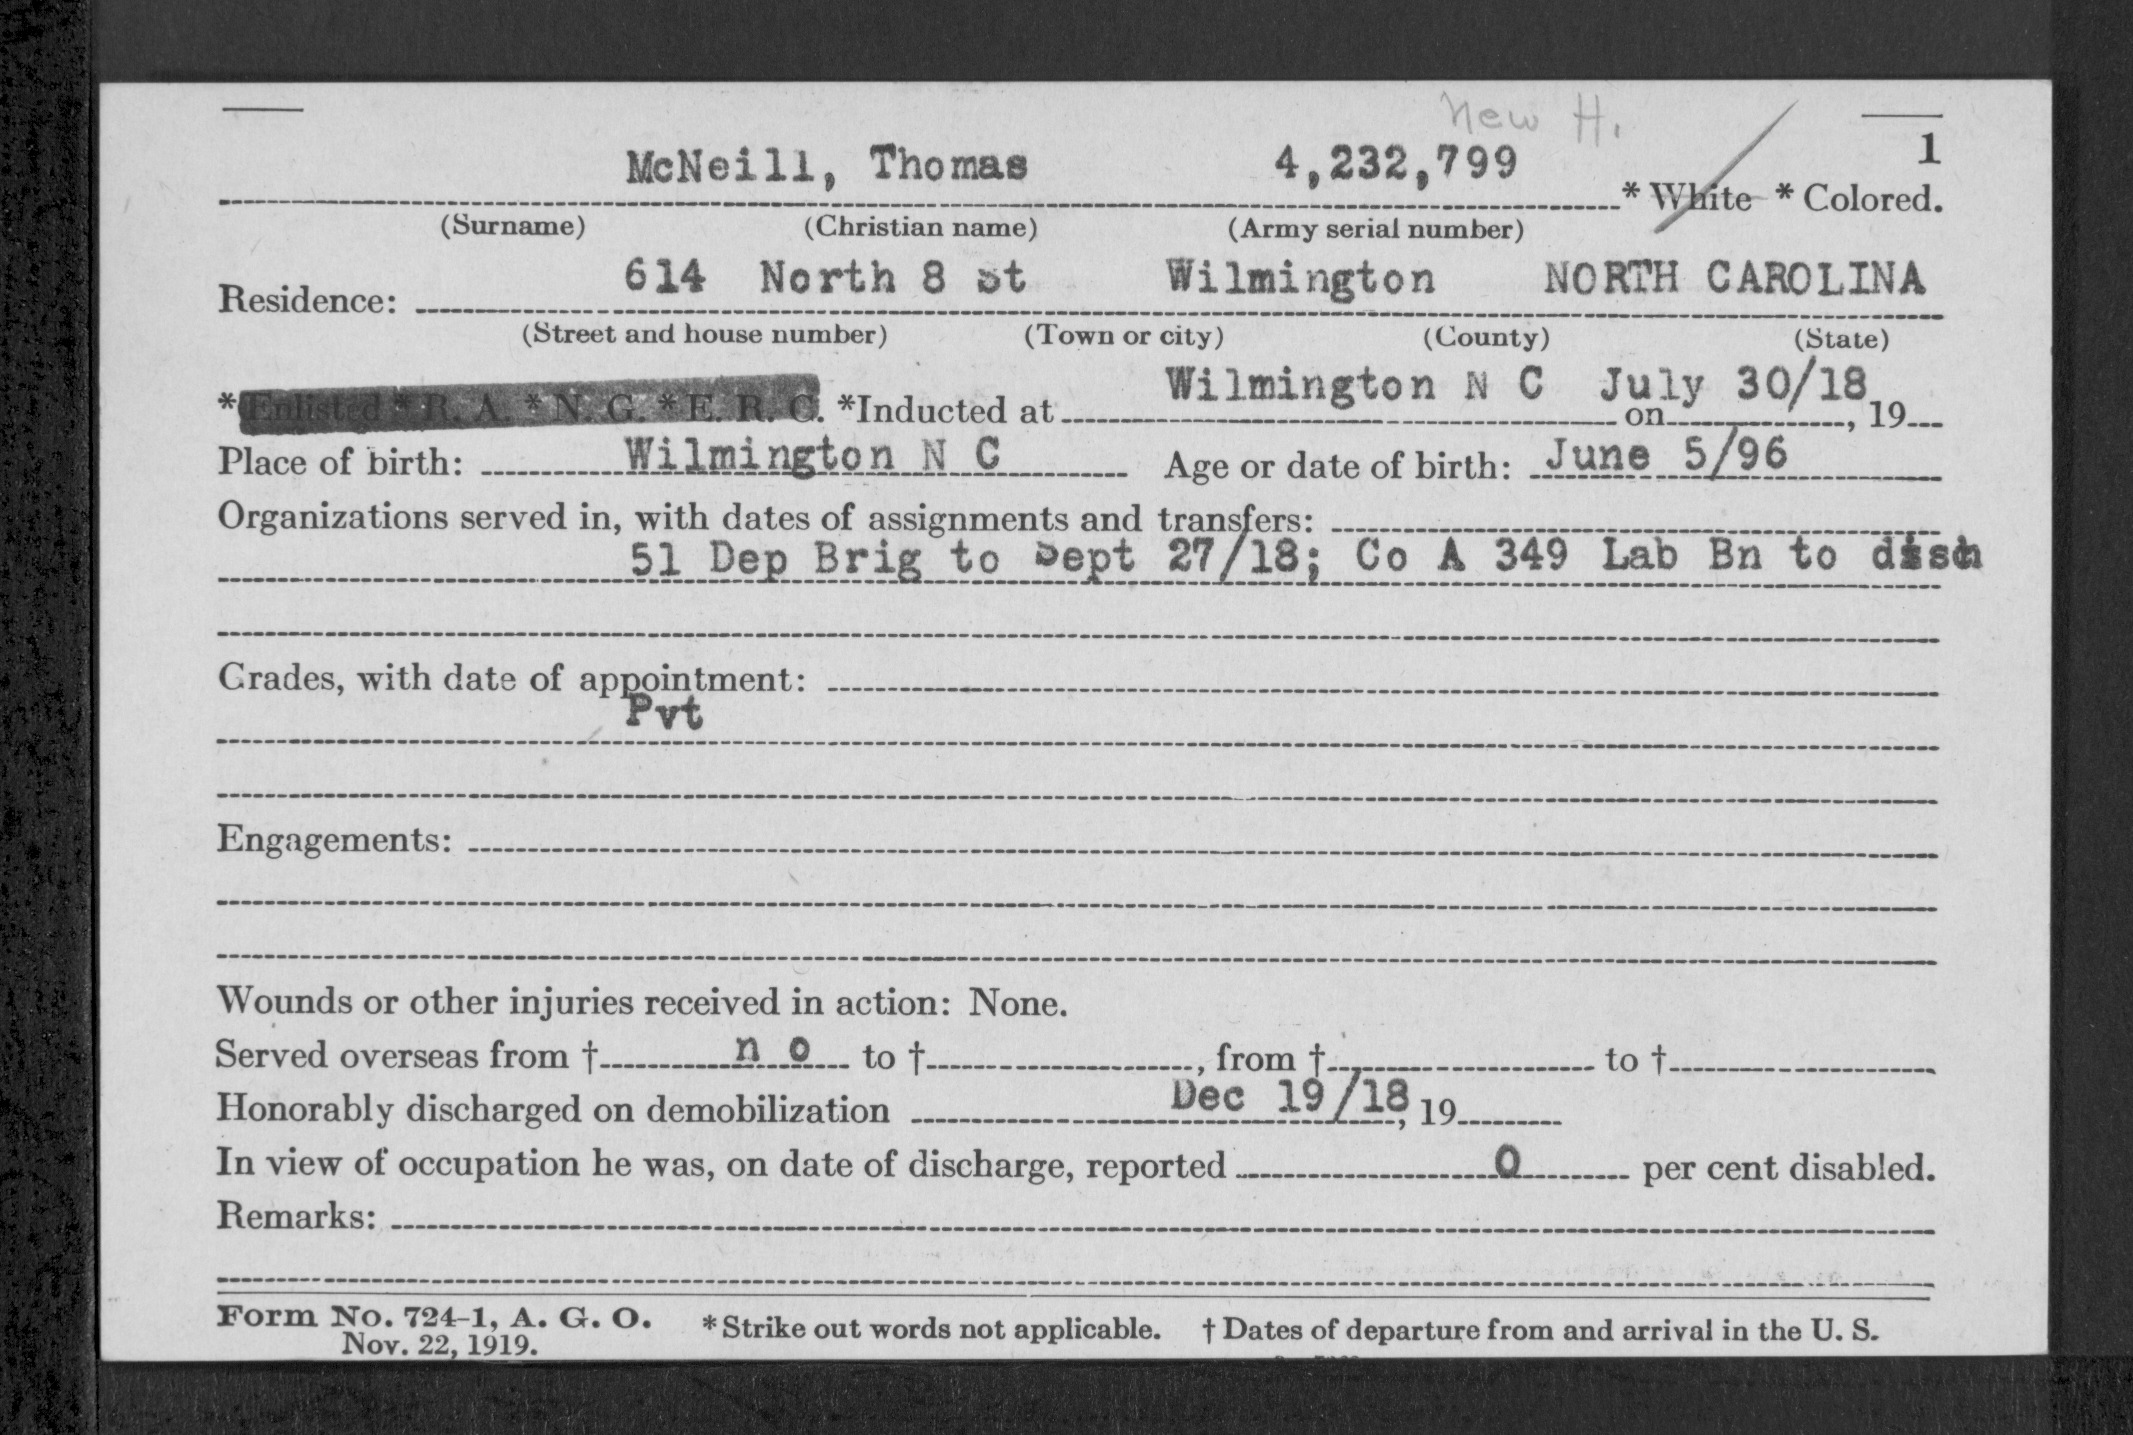 New H.
1
McNeill, Thomas 4,232,799 * White * Colored.
(Surname) (Christian name) (Army serial number)
Residence: 614 North 8 St Wilmington NORTH CAROLINA
(Street and house number) (Town or city) (County) (State)
*Enlisted * R. A. * N. G. * E. R. C. *Inducted at Wilmington N C on July 30/18, 19
Place of birth: Wilmington N C Age or date of birth: June 5/96
Organizations served in, with dates of assignments and transfers:
51 Dep Brig to Sept 27/18; Co A 349 Lab Bn to disch
Grades, with date of appointment:
Pvt
Engagements:
Wounds or other injuries received in action: None.
Served overseas from † no to †, from † to †
Honorably discharged on demobilization Dec 19/18, 19
In view of occupation he was, on date of discharge, reported 0 per cent disabled.
Remarks:
Form No. 724-1, A. G. O. *Strike out words not applicable. † Dates of departure from and arrival in the U. S.
Nov. 22, 1919.